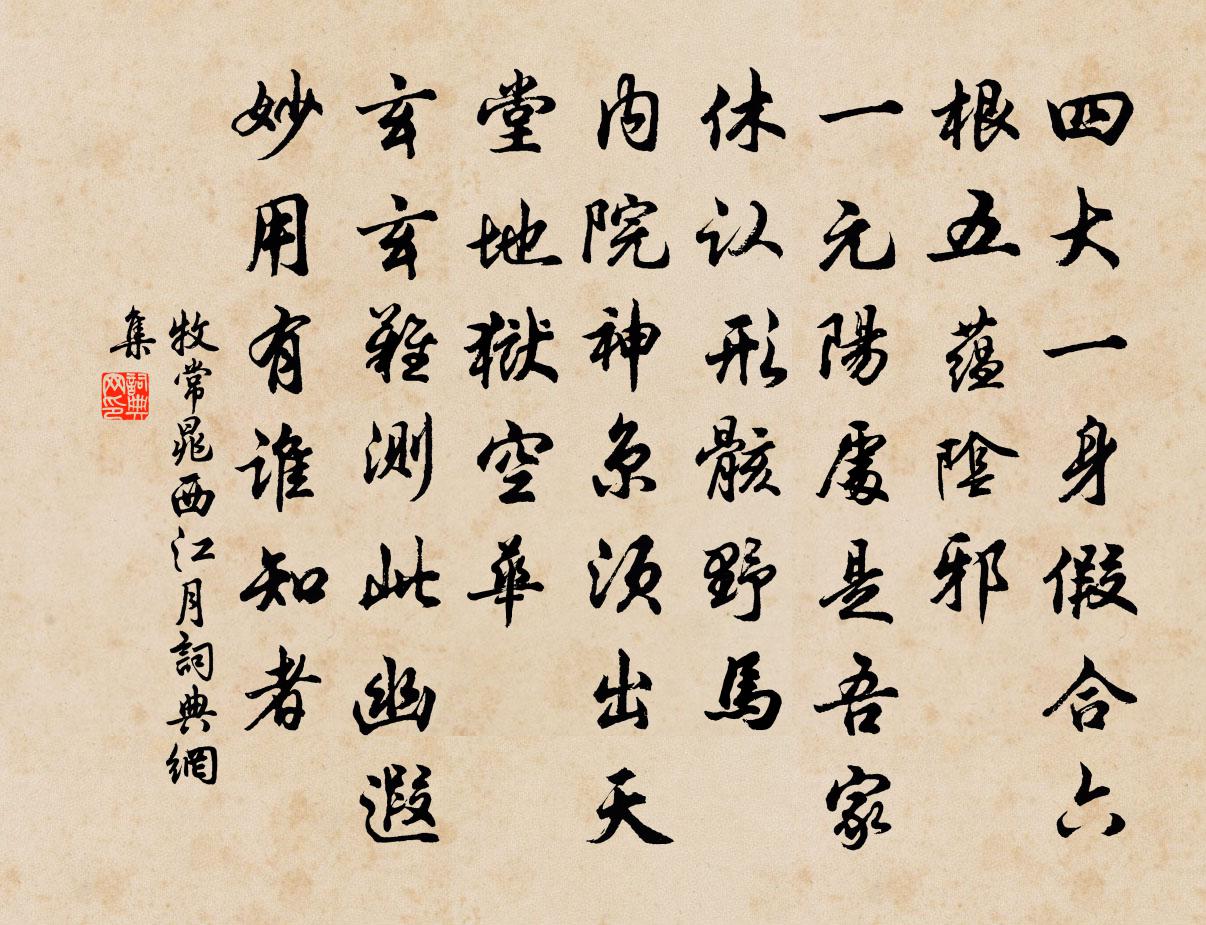 四大一身假合六
根五蕴陰邪
一元陽處是吾家
休认形骸野馬
内院神京须出天
堂地獄空華
玄玄難測此幽遐
妙用有谁知者
牧常晁西江月詞典網
集
詞典
网印